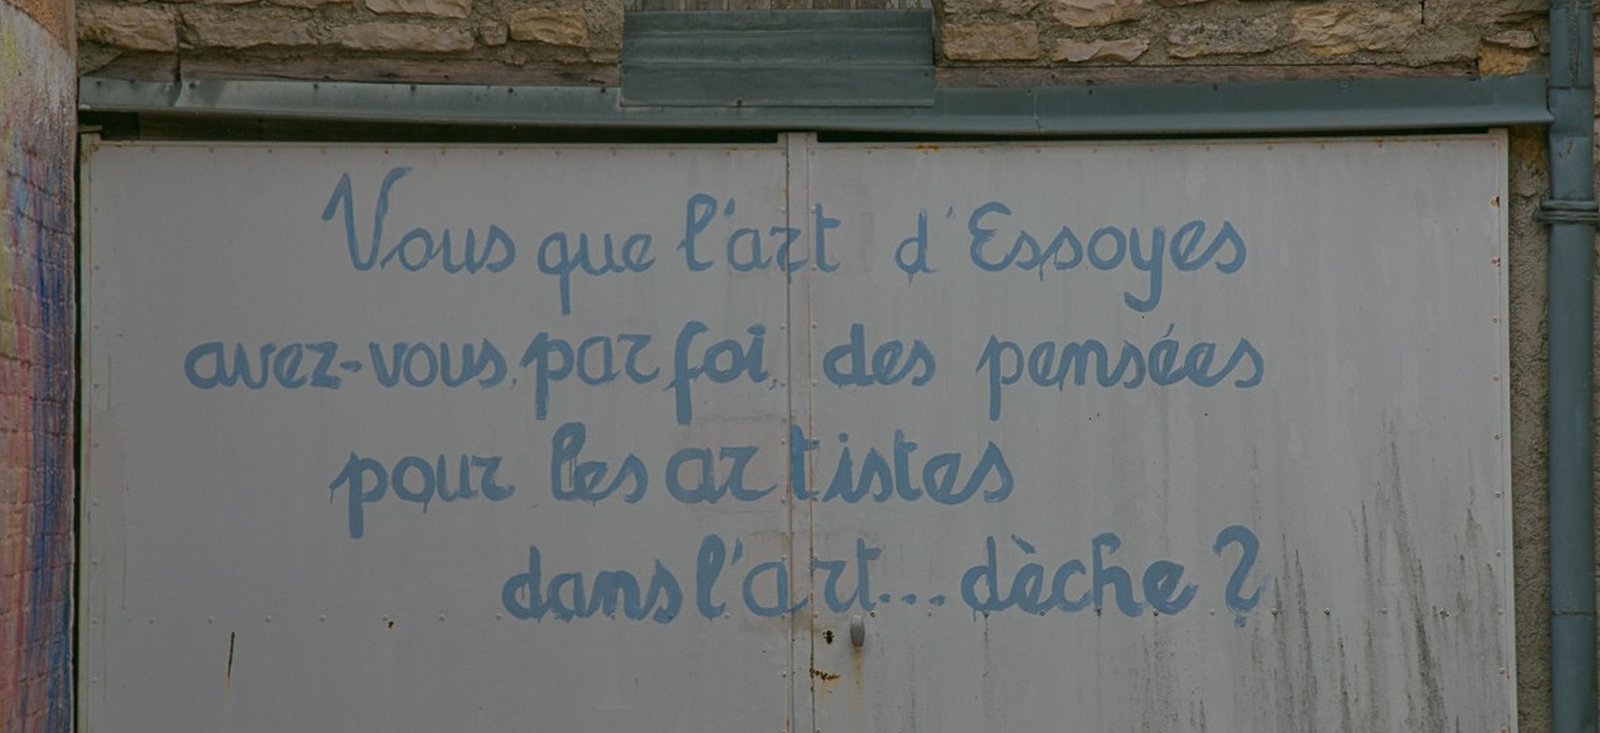 Vous que l'art d'Essoyes
avez-vous parfoi des pensées
pour les artistes
dans l'art... dèche ?